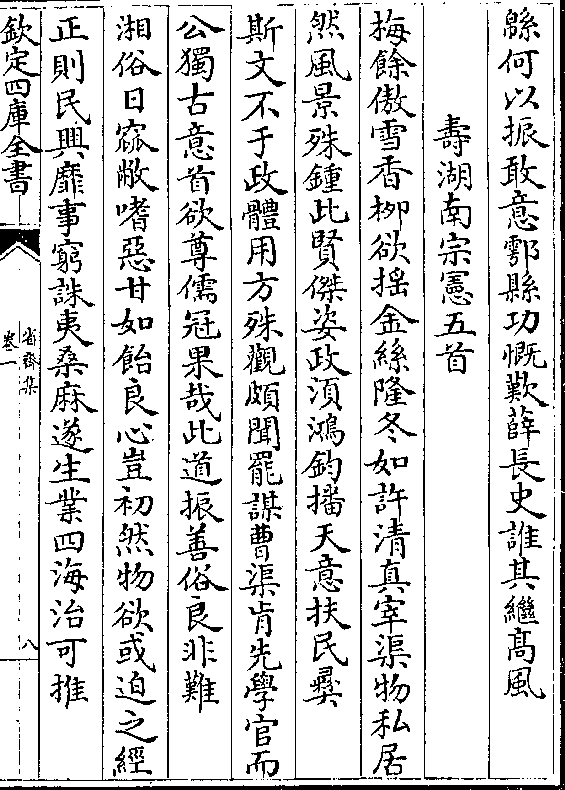 緜何以振敢意鄠縣功慨歎薛長史誰其繼髙風
壽湖南宗憲五首
梅餘傲雪香栁欲揺金絲隆冬如許清真宰渠物私居
然風景殊鍾此賢傑姿政湏鴻鈞播天意扶民彞
斯文不于政體用方殊觀頗聞罷謀曹渠肯先學官而
公獨古意首欲尊儒冠果哉此道振善俗良非難
湘俗日窳敝嗜惡甘如飴良心豈初然物欲或迫之經
正則民興靡事窮誅夷桑麻遂生業四海治可推
欽定四庫全書
省齋集
卷一
八